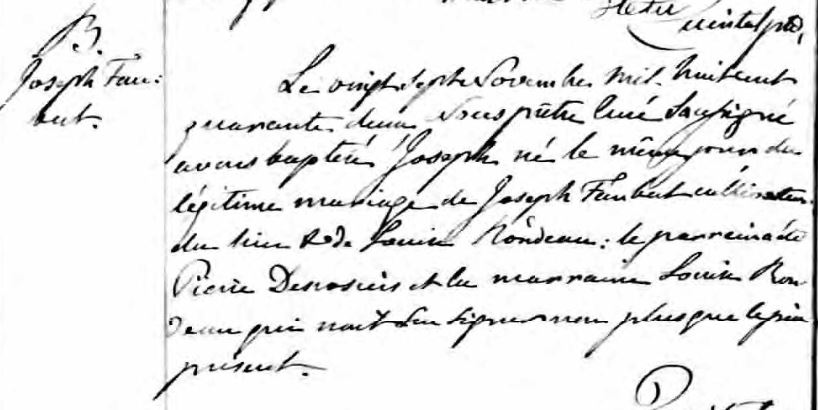 Quintal ptre,
B.
Joseph Fau:
but.
Le vingt sept Novembre mil huit cent
quarante deux Nous prêtre curé soussigné
avons baptisé Joseph né le même jour du
légitime mariage de Joseph Faubut cultivateur
du lieu & de Louise Rondeau: le parrain a été
Pierre Desrosiers et la marraine Louise Ron
deau qui n'ont su signer non plus que le père
présent.